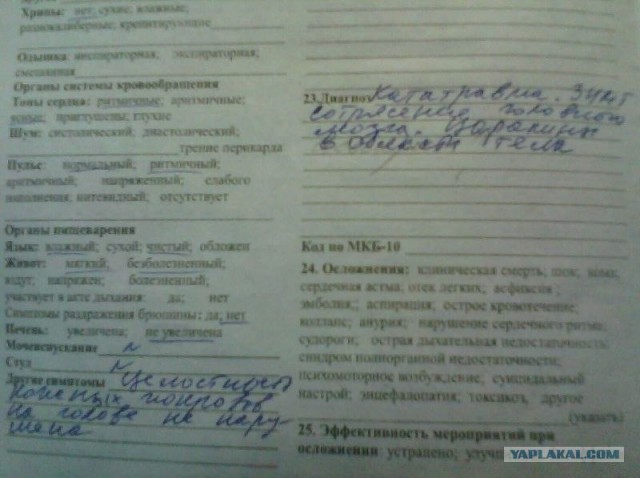 Хрипы: нет; сухие; влажные;
разнокалиберные; крепитирующие
Одышка инспираторная; экспираторная;
смешанная
Органы системы кровообращения
Тоны сердца: ритмичные; аритмичные;
ясные; приглушены; глухие
Шум: систолический; диастолический;
трение перикарда
Пульс: нормальный; ритмичный;
аритмичный; напряженный; слабого
наполнения; нитевидный; отсутствует
Органы пищеварения
Язык: влажный; сухой; чистый; обложен
Живот: мягкий; безболезненный;
вздут; напряжен; болезненный;
участвует в акте дыхания: да; нет
Симптомы раздражения брюшины: да; нет
Печень: увеличена; не увеличена
Мочеиспускание N
Стул N
Другие симптомы Целостность
кожных покровов
на голове не нару
шена
23.Диагноз Кататравма. ЗЧМТ
сотрясение головного
мозга. Царапины
в области тела
Код по МКБ-10
24. Осложнения: клиническая смерть; шок; кома;
сердечная астма; отек легких; асфиксия;
эмболия; аспирация; острое кровотечение;
коллапс; анурия; нарушение сердечного ритма;
судороги; острая дыхательная недостаточность;
синдром полиорганной недостаточности;
психомоторное возбуждение; суицидальный
настрой; энцефалопатия; токсикоз; другое
(указать)
25. Эффективность мероприятий при
осложнении: устранено; улучш
YAPLAKAL.COM